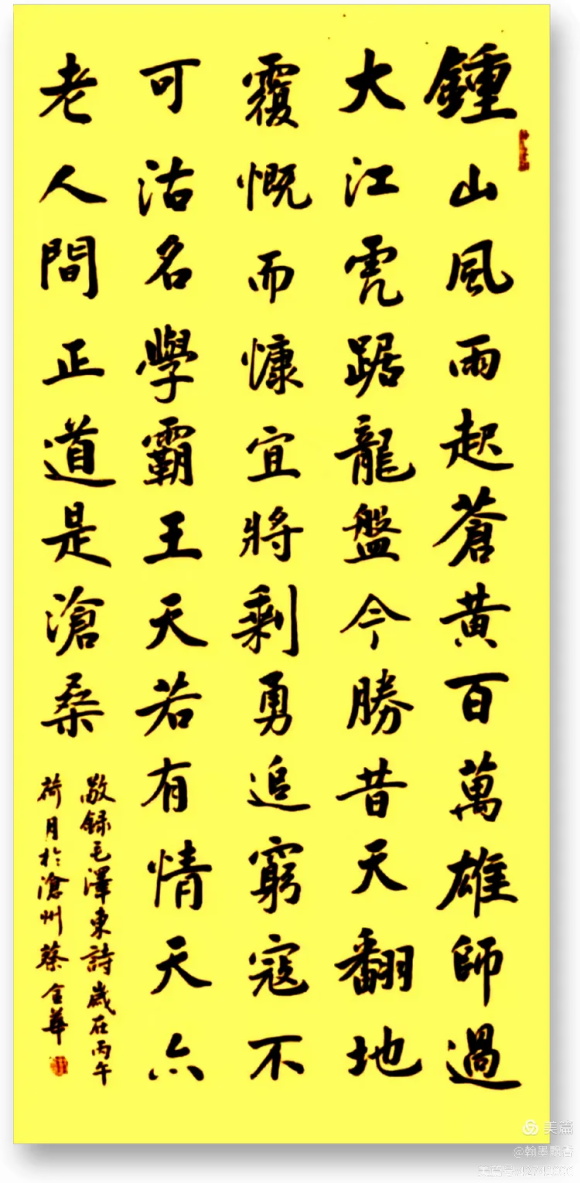 鍾山風雨起蒼黄百萬雄師過
大江虎踞龍盤今勝昔天翻地
覆慨而慷宜將剩勇追窮寇不
可沽名學霸王天若有情天亦
老人間正道是滄桑
敬録毛澤東詩歲在丙午
荷月於滄州蔡金華
美篇
@翰墨飘香